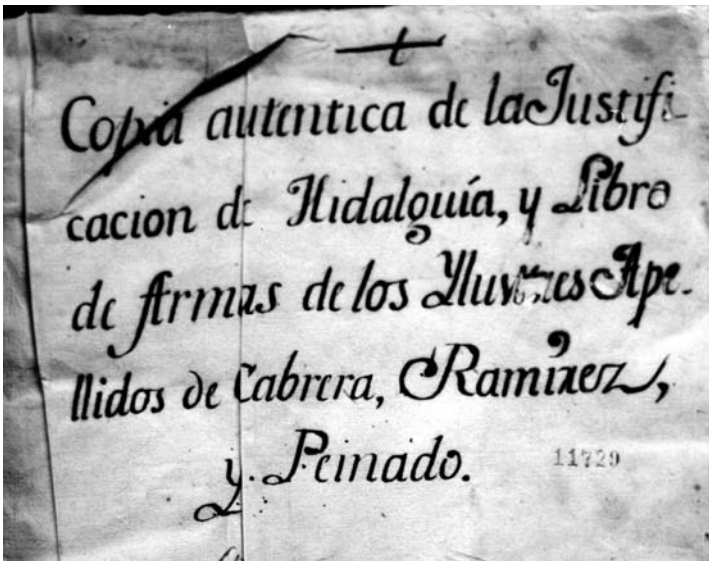 Copia autentica de la Justifi-
cacion de Hidalguía, y Libro
de Armas de los Yllustres Ape-
llidos de Cabrera, Ramirez,
y Peinado.
11729